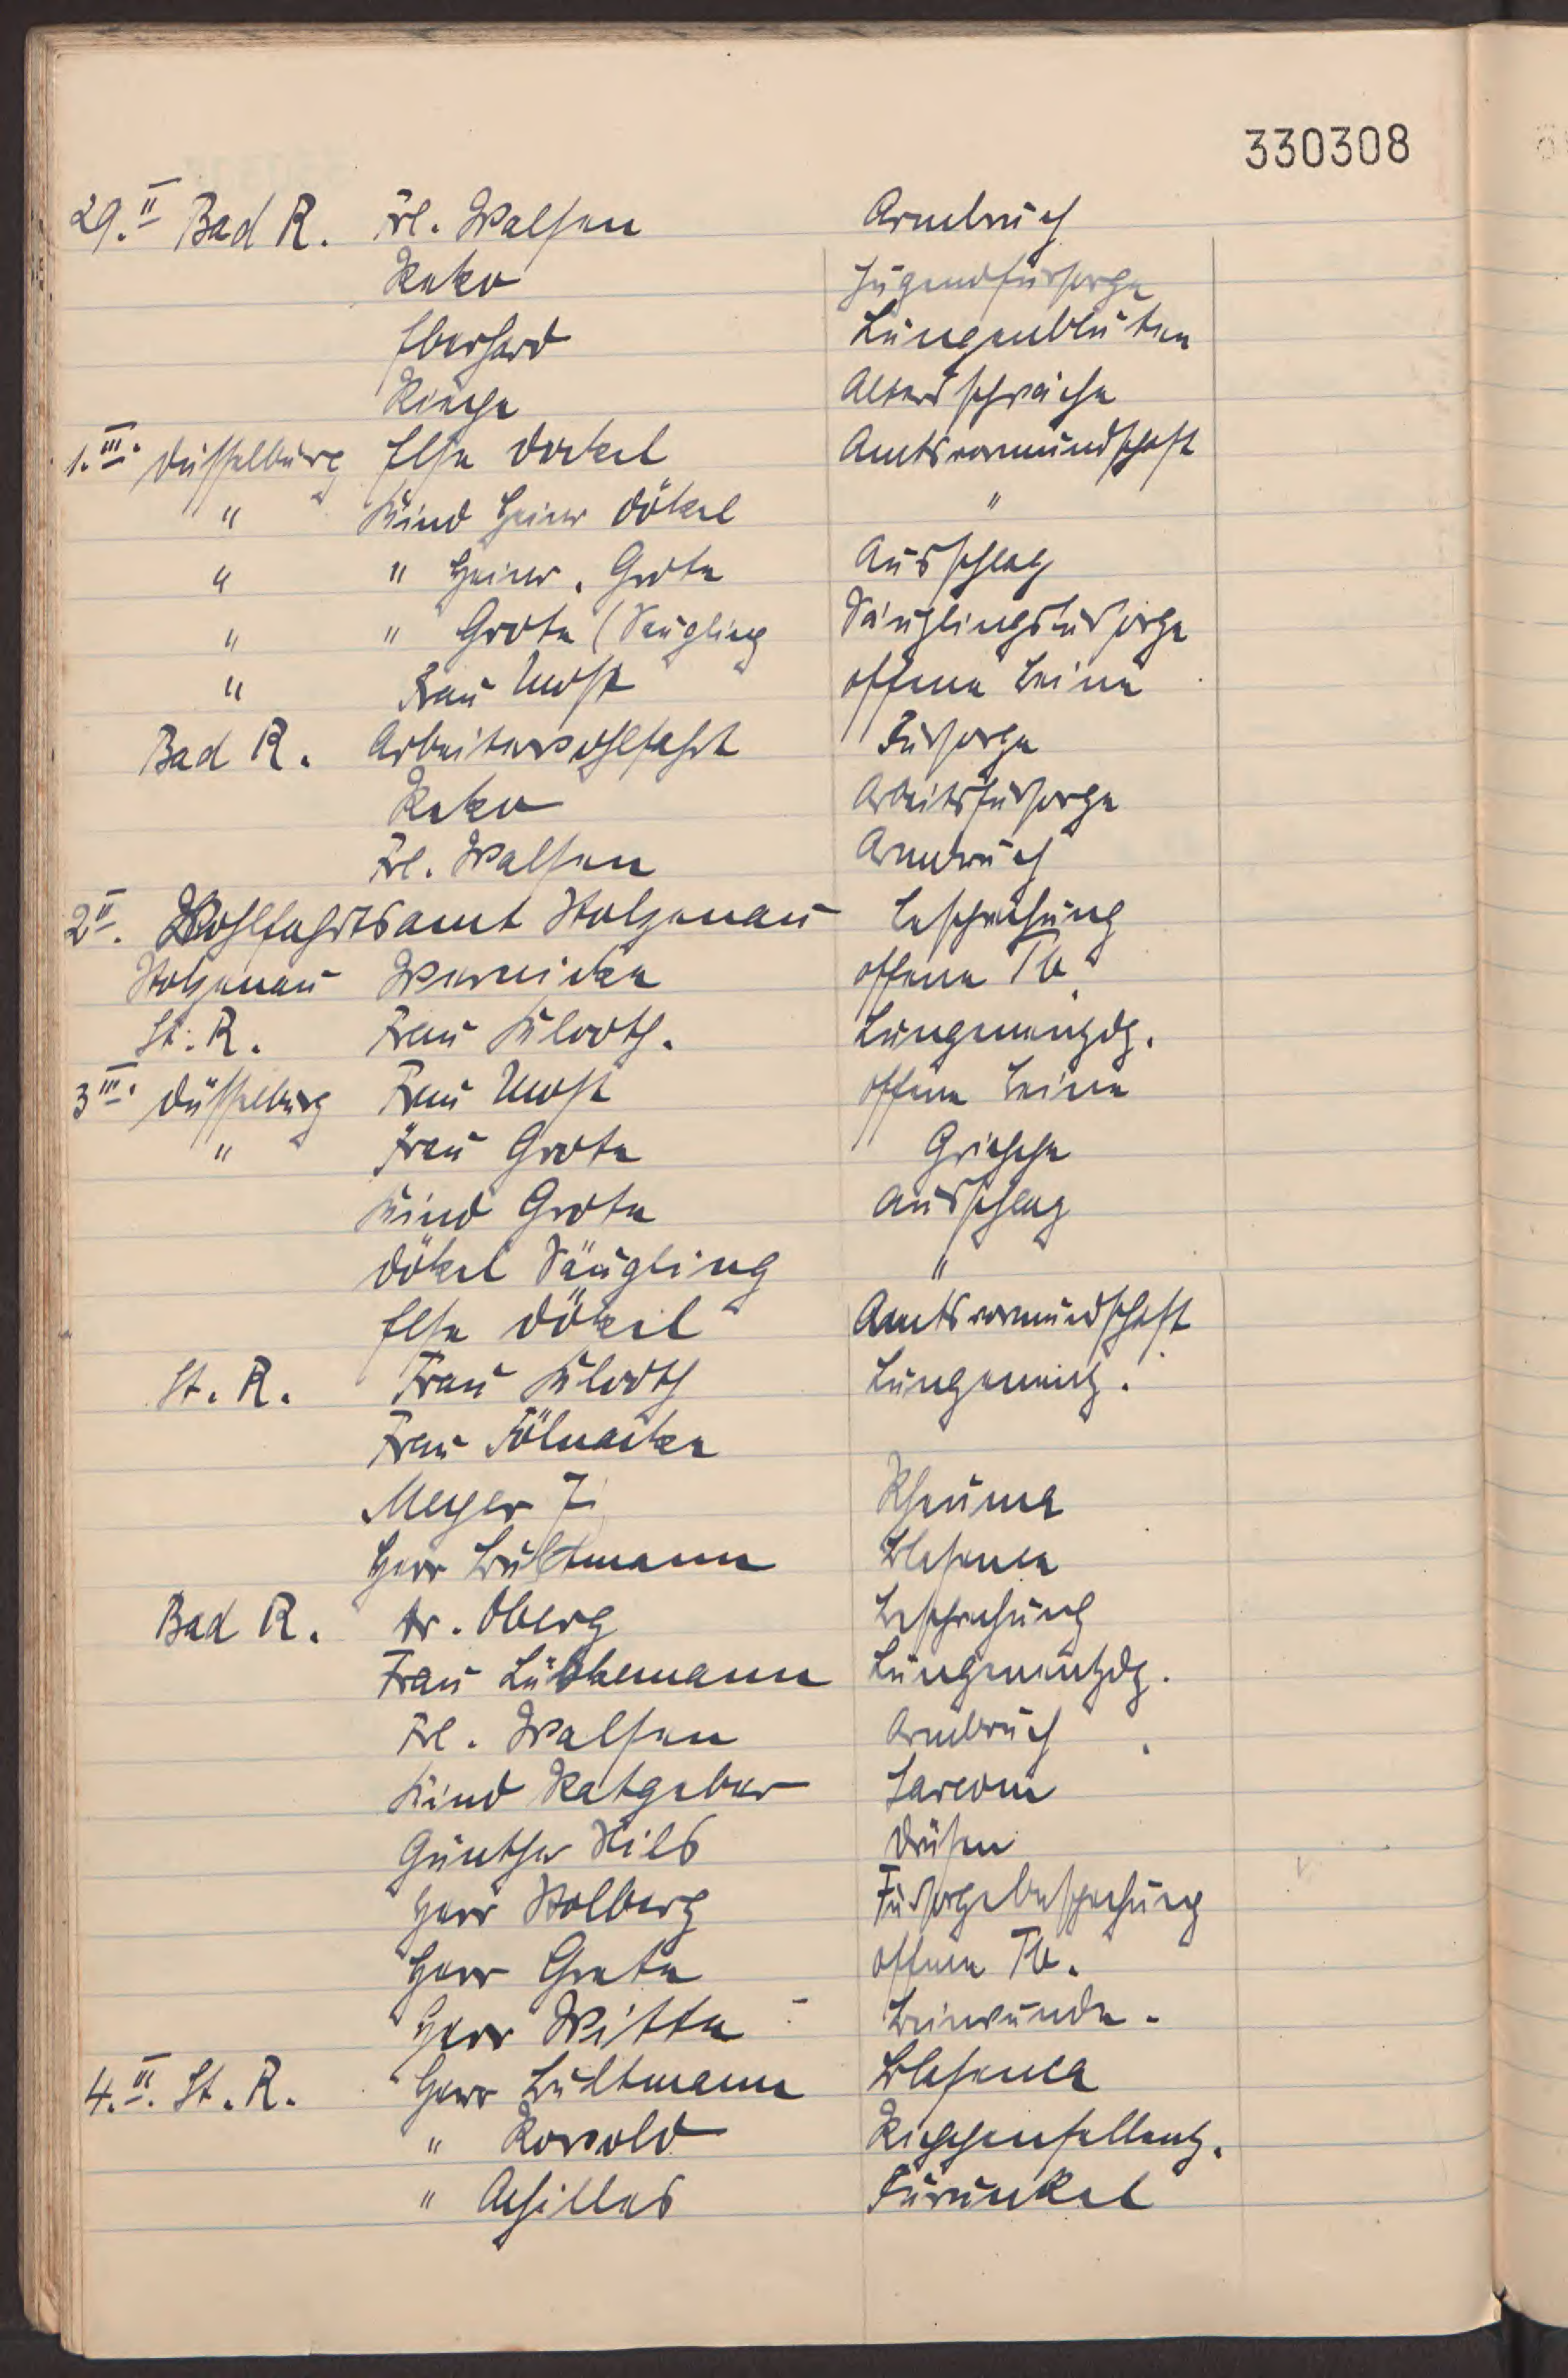 330308
29. II Bad R. Frl. Walsen Armbruch
Reko Jugendfürsorge
Eberhard Lungenbluten
Kinge Altersschwäche
1. III. Düsselburg Else Dökel Amtsvormundschaft
" Kind Heiner Dökel "
" " Heiner. Grote Ausschlag
" " Grote (Säugling Säuglingsfürsorge
" Frau Most offene Beine
Bad R. Arbeiterwohlfahrt Fürsorge
Reko Arbeitsfürsorge
Frl. Walsen Armbruch
2 II. Wohlfahrtsamt Stolzenau Besprechung
Stolzenau Wernicke offene Tb.
St. R. Frau Klooth. Lungenentzdg.
3 III. Düsselburg Frau Most offene Beine
" Frau Grote Grippe
Kind Grote Ausschlag
Dökel Säugling "
Else Dökel Amtsvormundschaft
St. R. Frau Klooth Lungenentz.
Frau Fölnacke
Meyer 7 Rheuma
Herr Bultmann Blasenca
Bad R. Dr. Oberg Besprechung
Frau Lübkemann Lungenentzdg.
Frl. Walsen Armbruch
Kind Ratgeber Sarcom
Günther Hils Drüsen
Herr Stolberg Fürsorgebesprechung
Herr Grete offene Tb.
Herr Witte Beinwunde.
4. III. St. R. Herr Bultmann Blasenca
" Rowold Rippenfellentz.
" Achilles Furunkel